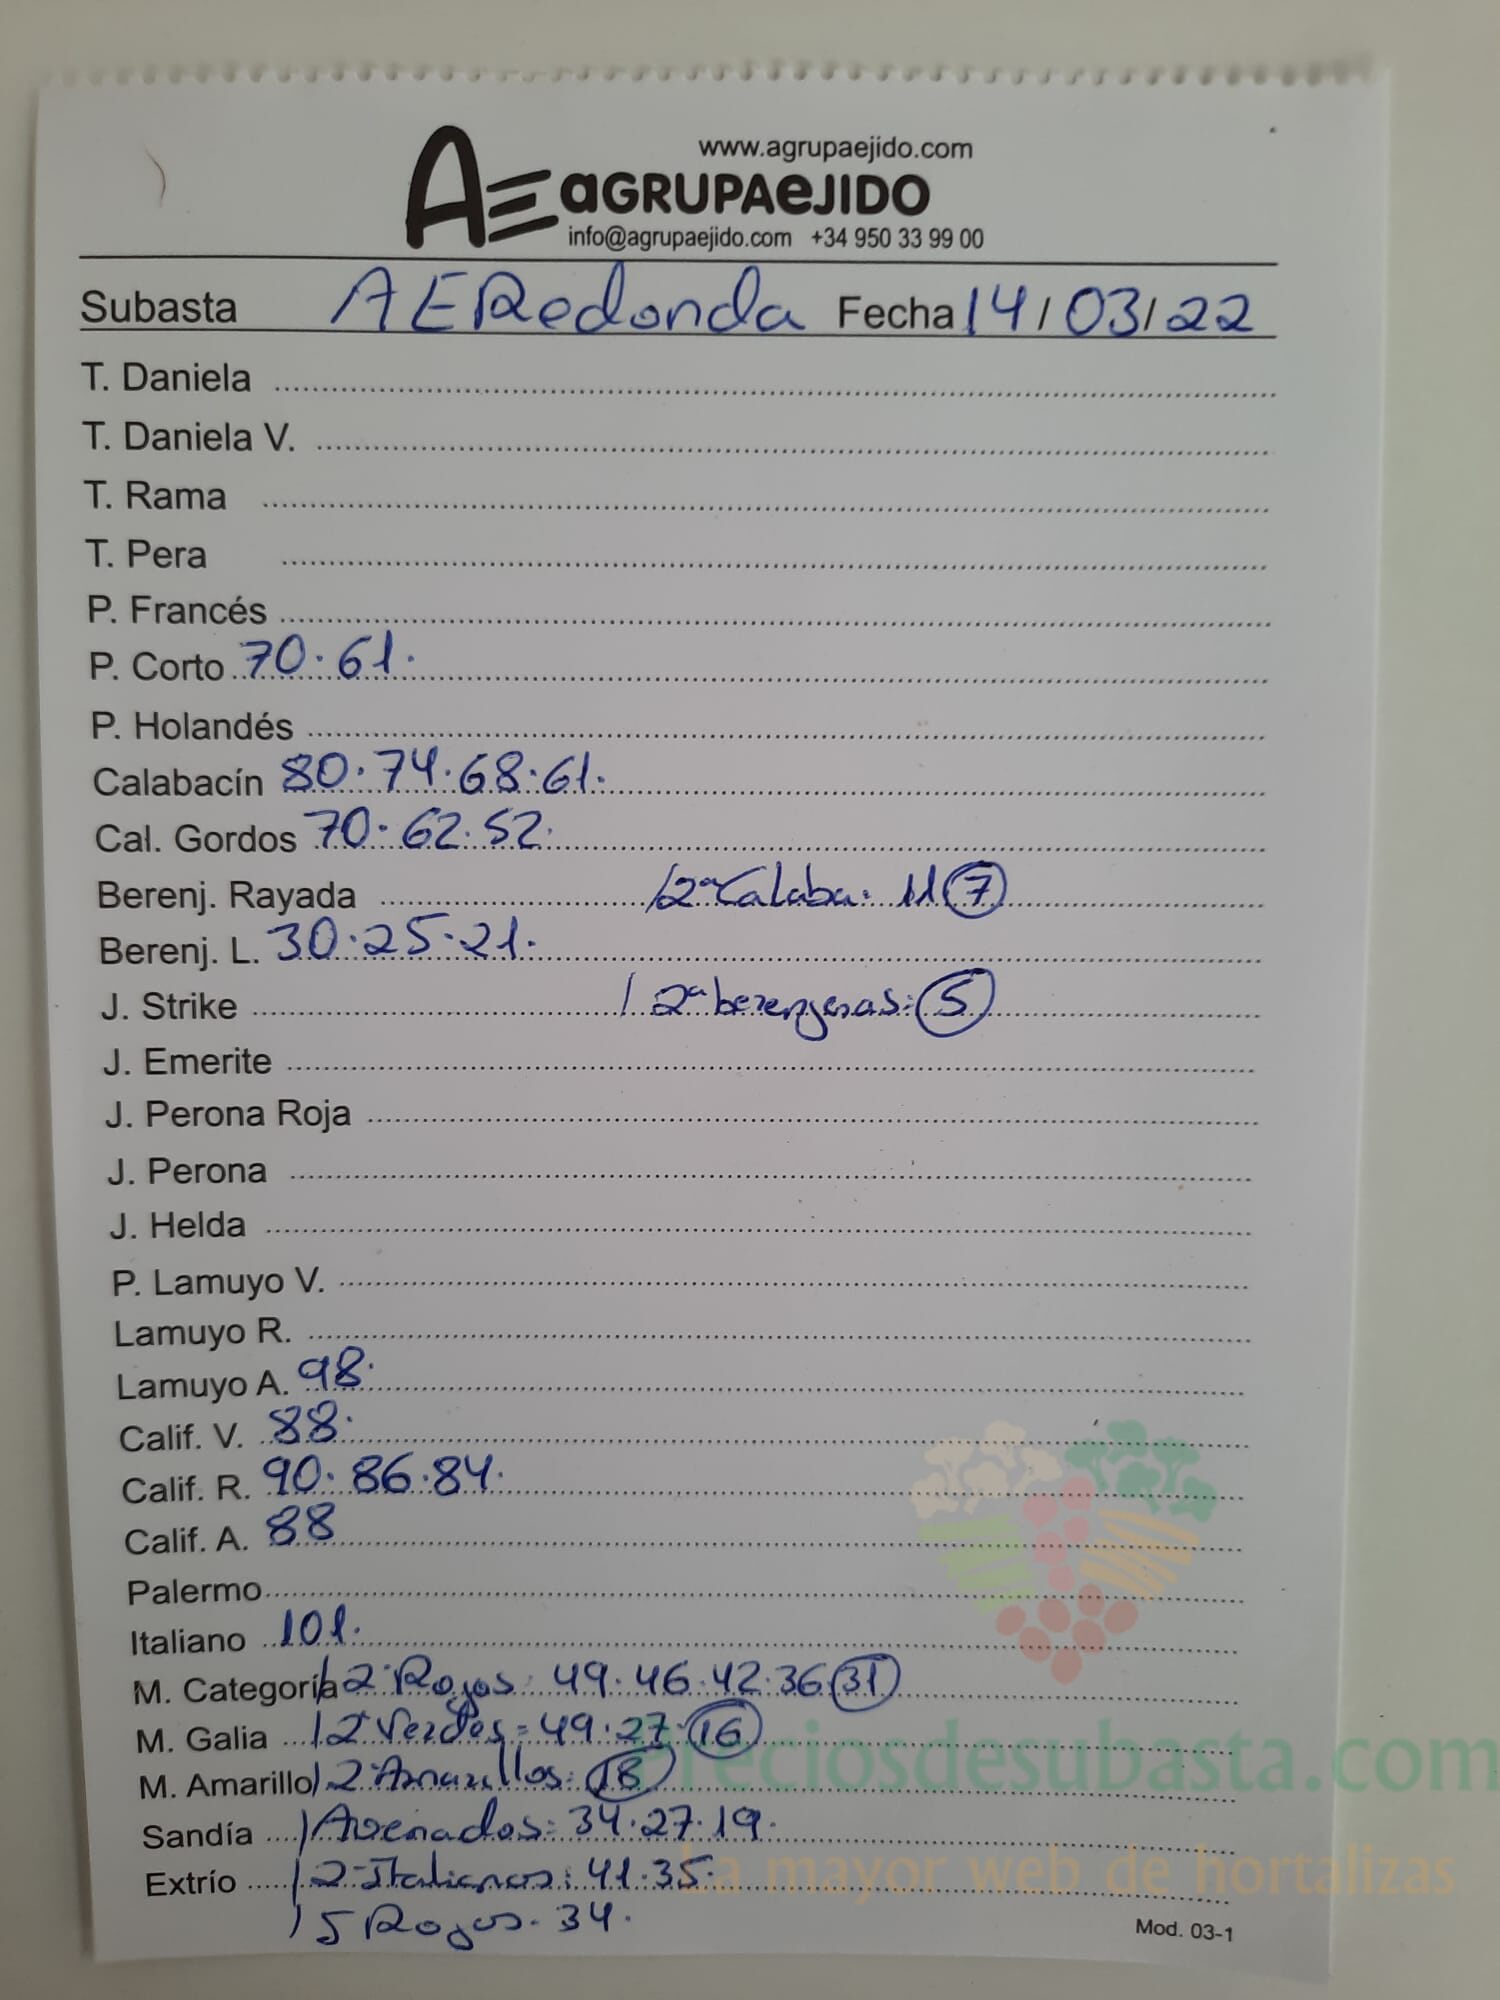 www.agrupaejido.com
AE aGRUPAeJIDO
info@agrupaejido.com +34 950 33 99 00
Subasta AERedonda Fecha 14/03/22
T. Daniela
T. Daniela V.
T. Rama
T. Pera
P. Francés
P. Corto 70. 61.
P. Holandés
Calabacín 80. 74. 68. 61.
Cal. Gordos 70. 62. 52.
Berenj. Rayada /2ª Calaba: 11 (7)
Berenj. L. 30. 25. 21.
J. Strike /2ª berenjenas: (5)
J. Emerite
J. Perona Roja
J. Perona
J. Helda
P. Lamuyo V.
Lamuyo R.
Lamuyo A. 98.
Calif. V. 88.
Calif. R. 90. 86. 84.
Calif. A. 88
Palermo
Italiano 101.
M. Categoría /2ª Rojos: 49. 46. 42. 36 (31)
M. Galia /2ª Verdes= 49. 27. (16)
M. Amarillo /2ª Amarillos: (18)
preciosdesubasta.com
Sandía /Asenados: 34. 27. 19.
Extrío /2ª Italianos: 41. 35.
La mayor web de hortalizas
/5 Rojos. 34.
Mod. 03-1